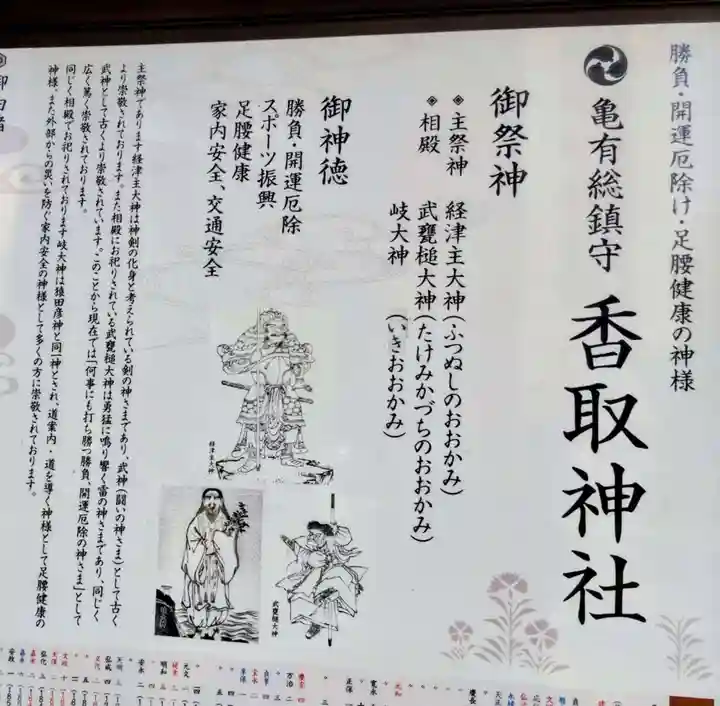 勝負・開運厄除け・足腰健康の神様
亀有総鎮守 香取神社
御祭神
主祭神 経津主大神(ふつぬしのおおかみ)
相殿 武甕槌大神(たけみかづちのおおかみ)
岐大神 (いきおおかみ)
御神徳
勝負・開運厄除
スポーツ振興
足腰健康
家内安全、交通安全
経津主大神
武甕槌大神
主祭神であります経津主大神は神剣の化身と考えられている剣の神さまであり、武神(闘いの神さま)として古く
より崇敬されております。また相殿にお祀りされている武甕槌大神は勇猛に鳴り響く雷の神さまであり、同じく
武神として古くより崇敬されています。このことから現在では「何事にも打ち勝つ勝負、開運厄除の神さま」として
広く篤く崇敬されております。
同じく相殿でお祀りされております岐大神は猿田彦神と同一神とされ、道案内・道を導く神様として足腰健康の
神様。また外部からの災いを防ぐ家内安全の神様として多くの方に崇敬されております。
慶長
元和
寛永
正保
万治
元文
明和
安永
天明
弘化
安政